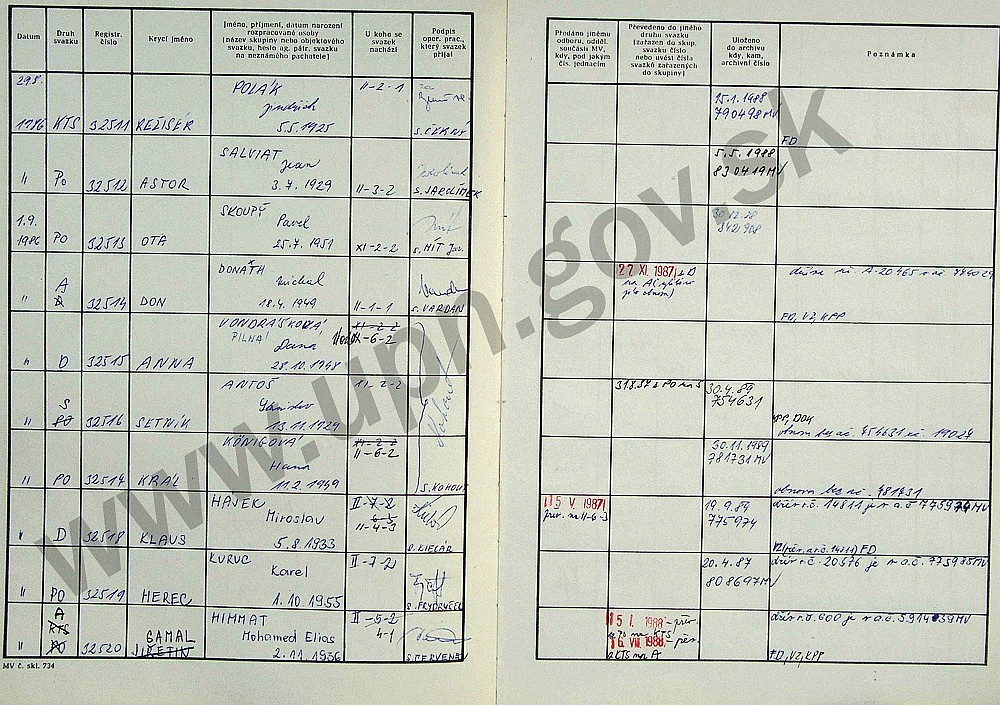 Datum
Druh svazku
Registr. číslo
Krycí jméno
Jméno, příjmení, datum narození
rozpracované osoby
(název skupiny nebo objektového
svazku, heslo ag. pátr. svazku
na neznámého pachatele)
U koho se
svazek
nachází
Podpis
oper. prac.,
který svazek
přijal
Předáno jinému
odboru, odděl.
součásti MV,
kdy, pod jakým
čís. jednacím
Převedeno do jiného
druhu svazku
(zařazen do skup.
svazku číslo
nebo uvést čísla
svazků zařazených
do skupiny)
Uloženo
do archivu
kdy, kam,
archivní číslo
Poznámka
29.8.
1986 KTS 32511 REŽISER
POLÁK
Jindřich
5.5.1925
II-2-1
za
s. ČERNÝ
15.1.1988
790498 MV
FD
" Po 32512 ASTOR
SALVIAT
Jean
3.7.1929
II-3-2
s. JAROLÍMEK
5.5.1988
830419 MV
1.9.
1986 PO 32513 OTA
SKOUPÝ
Pavel
25.7.1951
XI-2-2
s. HÍT Jar.
" A
D 32514 DON
DONÁTH
Michal
18.4.1949
II-1-1
s. VARDAN
27. XI. 1987 z D
na A
A-20465
FD, VZ, KPP
" D 32515 ANNA
VONDRÁŠKOVÁ,
PILNÁ
Dana
28.10.1948
XI-2-2
II-6-2
S
" PO 32516 SETNÍK
ANTOŠ
13.11.1929
II-2-2
31.8.87 z PO na S
30.4.89
754631
KPP, DOK
obnova 19027
" PO 32517 KRÁL
KÖNIGOVÁ
Hana
11.2.1949
XI-2-2
II-6-2
s. KOHOUT
30.11.1989
781731 MV
obnova
" D 32518 KLAUS
HÁJEK
Miroslav
5.8.1933
II-7-2
6-3
II-4-3
s. KIEČÁR
15. V. 1987
přev. na II-6-3
19.9.89
775974
dříve r.č. 14811 je v a.č.
FD
" PO 32519 HEREC
KURUC
Karel
1.10.1955
II-7-2
s. FRYDRYČEK
20.4.87
808697 MV
dříve r.č. 20576 je v a.č. 775985 MV
A
KTS
" PO 32520 GAMAL
HIMMAT
Mohamed Elias
2.11.1936
II-5-2
4-1
s. ČERVENÁK
15. I. 1988 - přev.
z PO na KTS
16. VIII. 1988 - přev.
z KTS na A
dříve r.č. 600 je v a.č. 591439 MV
FD, VZ, KPP
MV č. skl. 734
www.upn.gov.sk